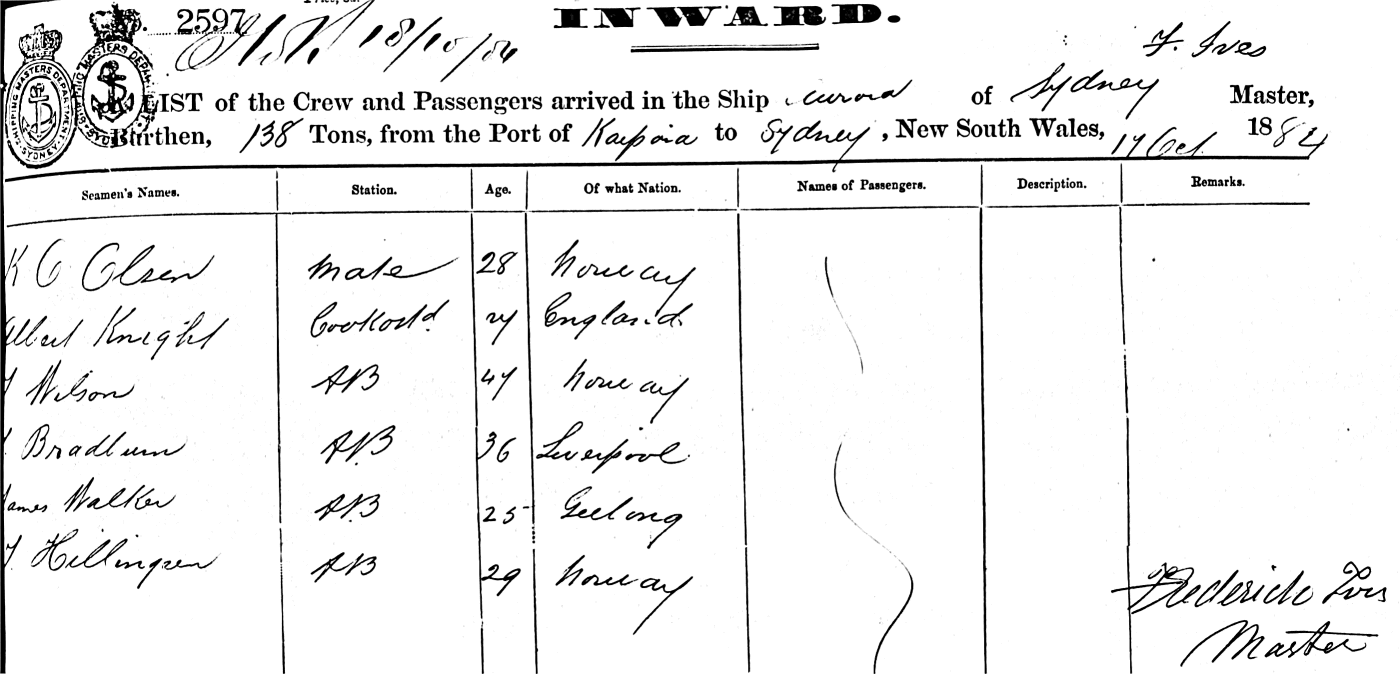 2597
18/10/84
INWARD.
F. Ives
LIST of the Crew and Passengers arrived in the Ship Aurora of Sydney Master,
Burthen, 138 Tons, from the Port of Kaipara to Sydney, New South Wales, 17 Oct 1884
Seamen's Names. Station. Age. Of what Nation. Names of Passengers. Description. Remarks.
K C Olsen Mate 28 Norway
Albert Knight Cook & Std. England
Wilson AB 47 Norway
Bradburn AB 36 Liverpool
James Walker AB 25 Geelong
Hillingsen AB 29 Norway
Frederick Ives
Master
SHIPPING MASTERS DEPARTMENT
SYDNEY